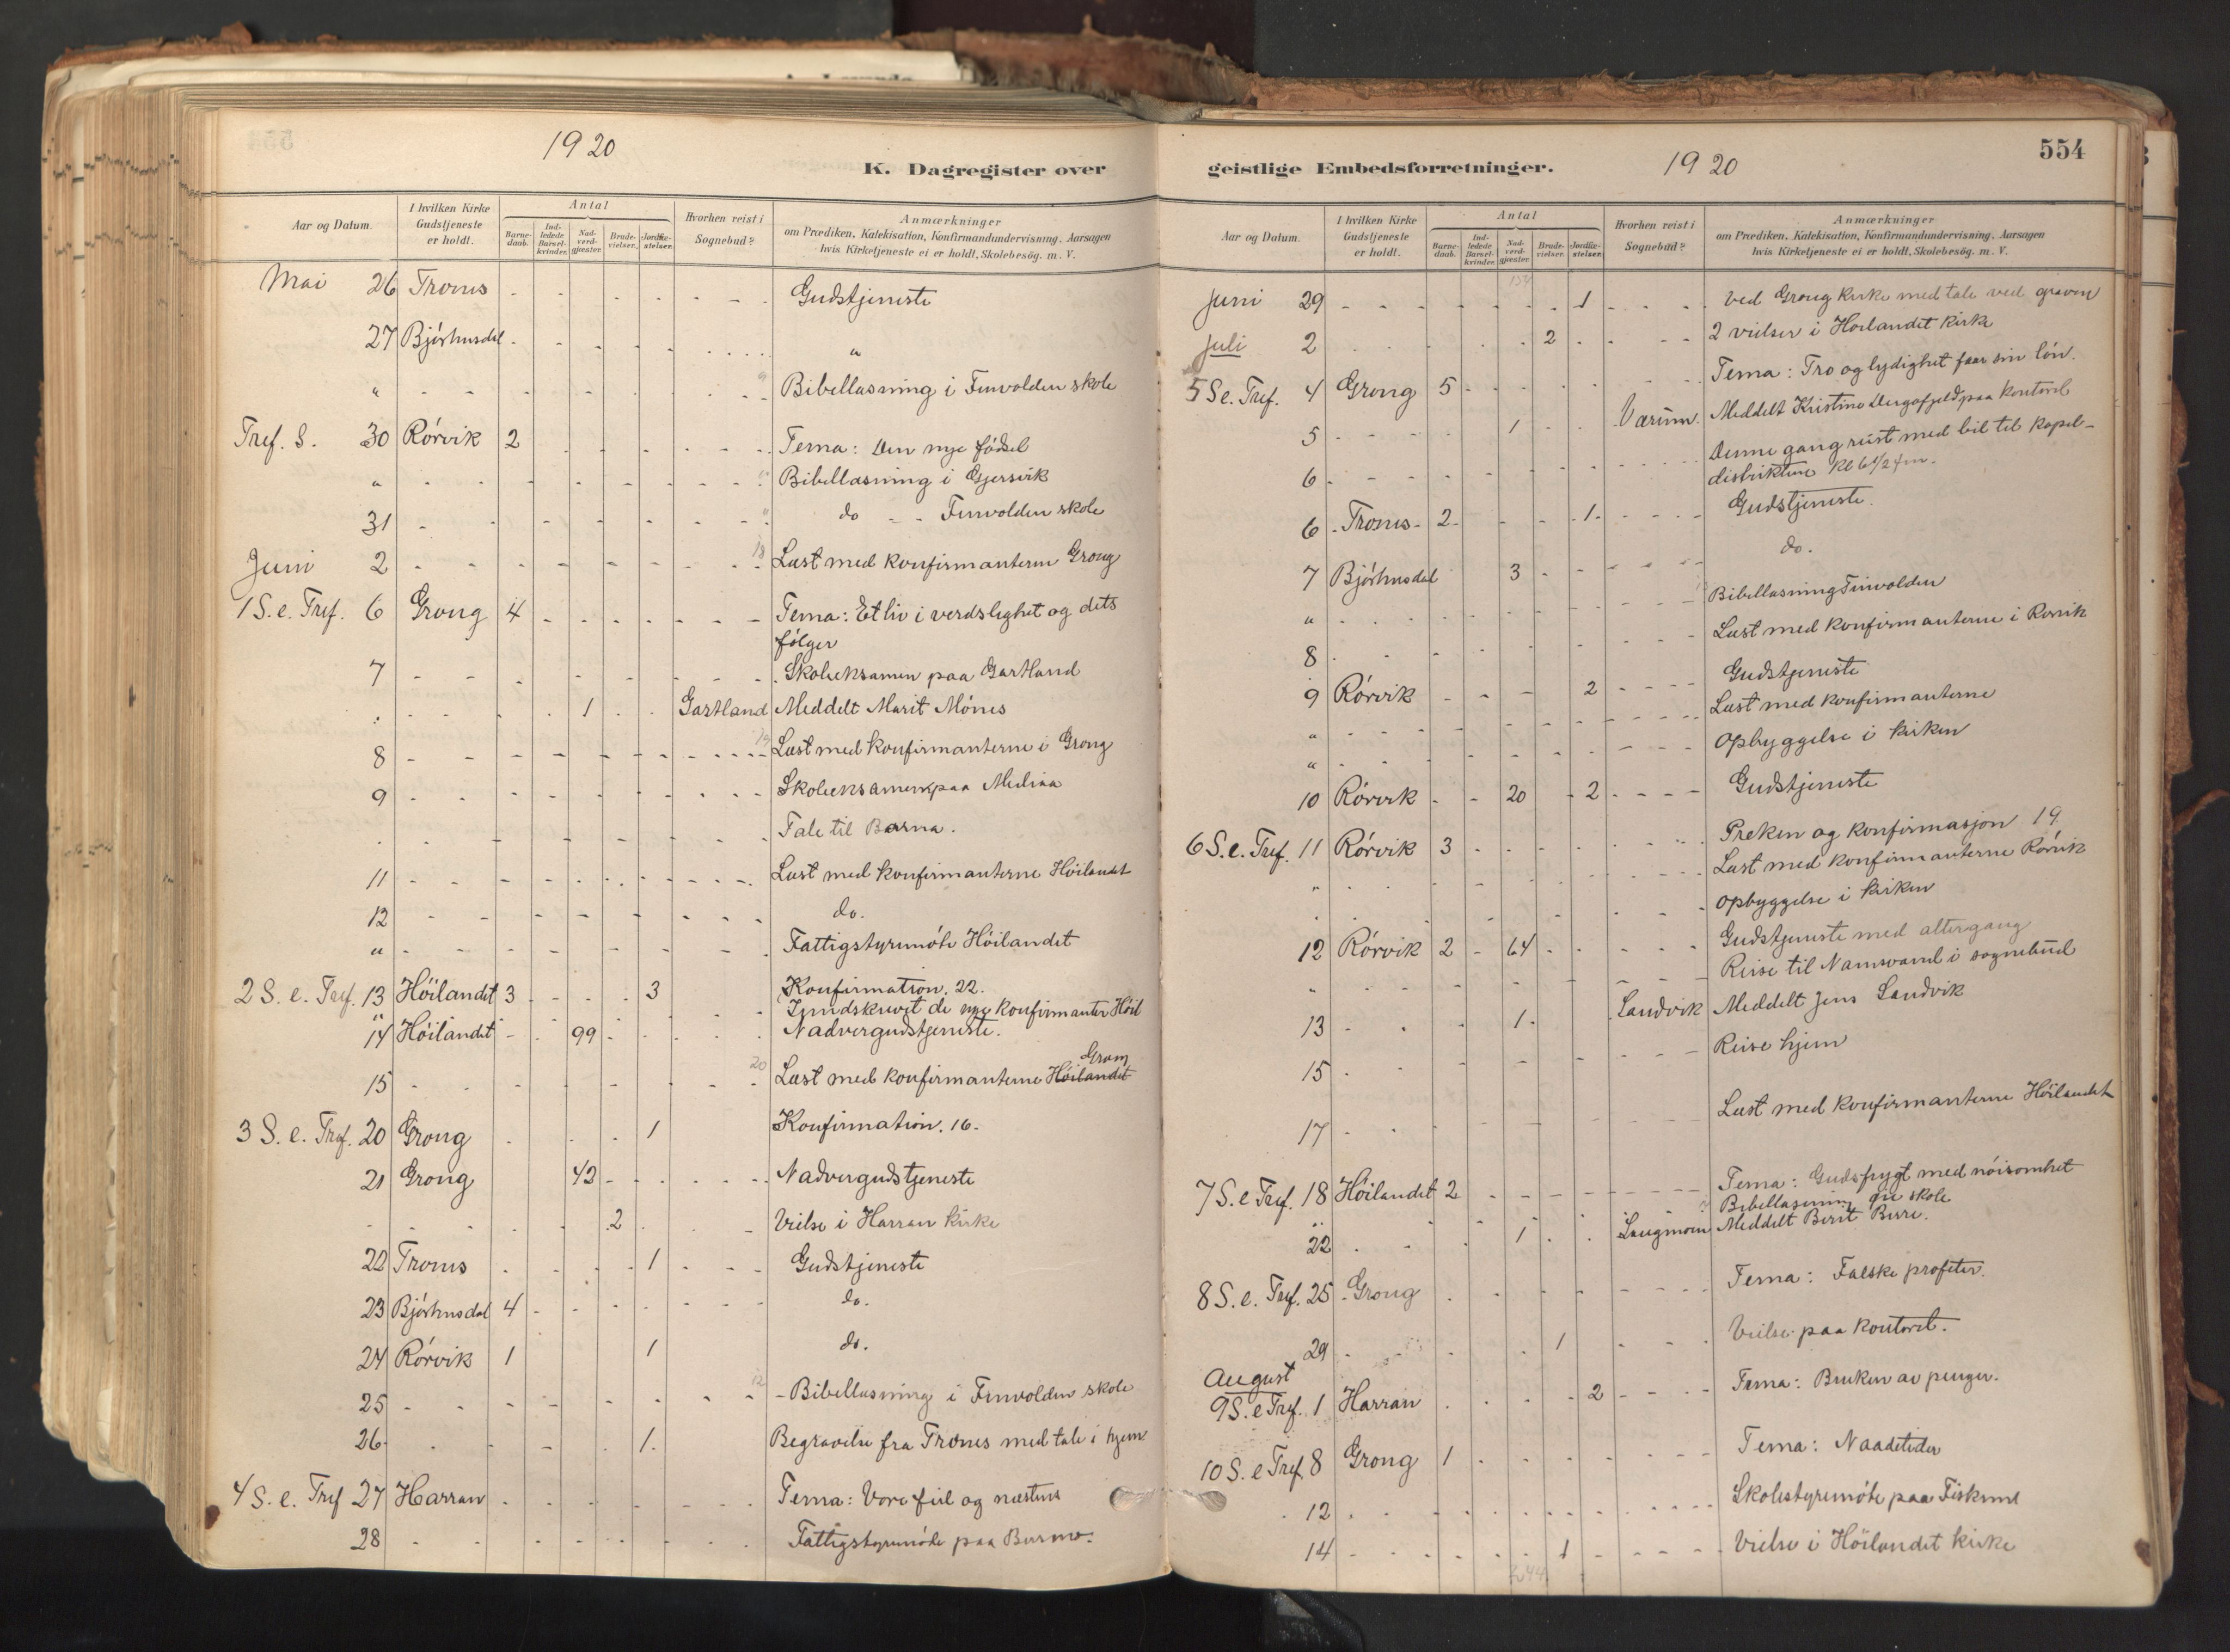 1920
K. Dagregister over
Aar og Datum.
I hvilken Kirke Gudstjeneste er holdt.
Antal
Barne-daab.
Ind-ledede Barsel-kvinder.
Nad-verd-gjester.
Brude-vielser.
Jordfæ-stelser.
Hvorhen reist i Sognebud?
Anmærkninger
om Prædiken, Katekisation, Konfirmandundervisning, Aarsagen
hvis Kirketjeneste ei er holdt, Skolebesög. m. V.
Mai 26 Trones - - - - - - Gudstjeneste
27 Bjórhusdal - - - - - - "
" - - - - - Bibellæsning i Finvolden skole
Tref. S. 30 Rórvik 2 - - - - Tema: Den nye fódsel
" - - - - - Bibellæsning i Gjersvik
31 - - - - - do - - Finvolden skole
Juni 2 - - - - - 18 Læst med konfirmanterne Grong
1 S. e. Tref. 6 Grong 4 - - - - Tema: Et liv i verdslighet og dets
fólger
7 - - - - - Skoleeksamen paa Gartland
" - - - 1 - - Gartland Meddelt Marit Mónes
8 - - - - - 19 Læst med konfirmanterne i Grong
9 - - - - - Skoleeksamen paa Mediaa
- - - - - Tale til Barna.
11 - - - - - Læst med konfirmanterne Höilandet
12 - - - - - do.
" - - - - - Fattigstyremóte Höilandet
2 S. e. Tref. 13 Höilandet 3 - - - 3 Konfirmation. 22.
" - Inndskrevet de nye konfirmanter Höil
14 Höilandet - - 99 - - Nadvergudstjeneste.
Grong
15 - - - - - 20 Læst med konfirmanterne Höilandet
3 S. e. Tref. 20 Grong - - - - 1 Konfirmation. 16.
21 Grong 42 - - - Nadvergudstjeneste
- - - - 2 - - Vielse i Harran kirke
22 Trones - - - - 1 - - Gudstjeneste
23 Bjórhusdal 4 - - - - do.
24 Rórvik 1 1 do.
25 - - - - - 12 - Bibellæsning i Finvolden skole
26 - - - - 1. Begravelse fra Trones med tale i hjem.
4 S. e. Tref 27 Harran - - - - - Tema: Vore feil og næstens
28 - - - - - Fattigstyremóte paa Bermo.
554
geistlige Embedsforretninger.
1920
Aar og Datum.
I hvilken Kirke Gudstjeneste er holdt.
Antal
Barne-daab.
Ind-ledede Barsel-kvinder.
Nad-verd-gjester.
Brude-vielser.
Jordfæ-stelser.
Hvorhen reist i Sognebud?
Anmærkninger
om Prædiken, Katekisation, Konfirmandundervisning, Aarsagen
hvis Kirketjeneste ei er holdt, Skolebesög. m. V.
Juni 29 - - - - - 1 - - ved Grong kirke med tale ved graven
Juli 2 - - - - 2 - - 2 vielser i Höilandet kirke
5 S. e. Tref. 4 Grong 5 - - - - Tema: Tro og lydighet faar sin lón.
5 - - - 1 - - Værum. Meddelt Kristine paa kontoret
6 - - - - - Denne gang reist med bil til kapel-
distriktene kl 6 1/2 fm.
6 - Trones - 2 - - - 1 - - Gudstjeneste.
7 Bjórhusdal 3 - - - do.
" - - - - Bibellæsning Finvolden
8 - - - - - Læst med konfirmanterne i Rórvik
9 Rórvik - - - 2 - - Gudstjeneste
" - - - - - Læst med konfirmanterne
" - - - - - Opbyggelse i kirken
10 Rórvik - - 20 - 2 - - Gudstjeneste
6 S. e. Tref. 11 Rórvik 3 - - - - Preken og konfirmasjon 19.
" - - - - - Læst med konfirmanterne Rórvik
" - - - - - Opbyggelse i kirken
12 Rórvik 2 - 64 - - Gudstjeneste med altergang
" - - - - - Reise til Namsvand i sognebud
13 - - - 1 - Sandvik Meddelt Jens Sandvik
15 - - - - - Reise hjem
17 - - - - - Læst med konfirmanterne Höilandet
7 S. e Tref. 18 Höilandet 2 - - - - Tema: Gudsfrygt med nóisomhet
" Bibellæsning Øie skole
22 - - - 1 - Langmoen Meddelt Berit
8 S. e. Tref. 25 Grong - - - - Tema: Falske profeter.
29 - - - - 1 - - Vielse paa kontoret.
August
9 S. e Tref. 1 Harran - - - - 2 - - Tema: Bruken av penger.
10 S. e Tref 8 Grong 1 - - - - Tema: Naadetider
12 - - - - - Skolestyremóte paa Fiskum
14 - - - - 1 - - Vielse i Höilandet kirke
244